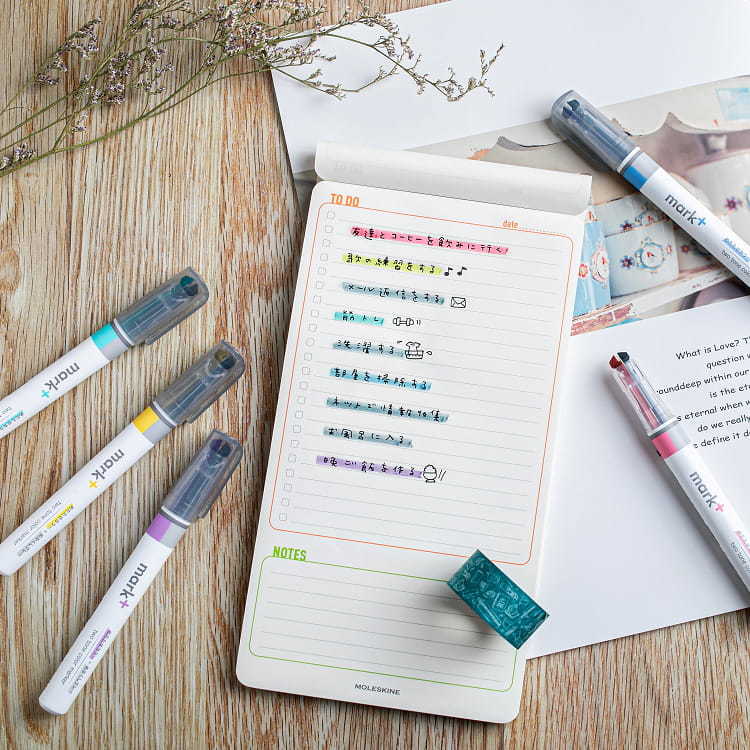 TO DO
date
友達とコーヒーを飲みに行く
歌の練習をする
メール返信をする
筋トレ
洗濯する
部屋を掃除する
ネットで情報収集
お風呂に入る
晩ご飯を作る
NOTES
MOLESKINE
mark+
mark+
Two tone color marker
mark+
Two tone color marker
mark+
two tone
mark+
two tone
What is Love? T
question
rounddeep within our
is the
s eternal when
do we really
e define it